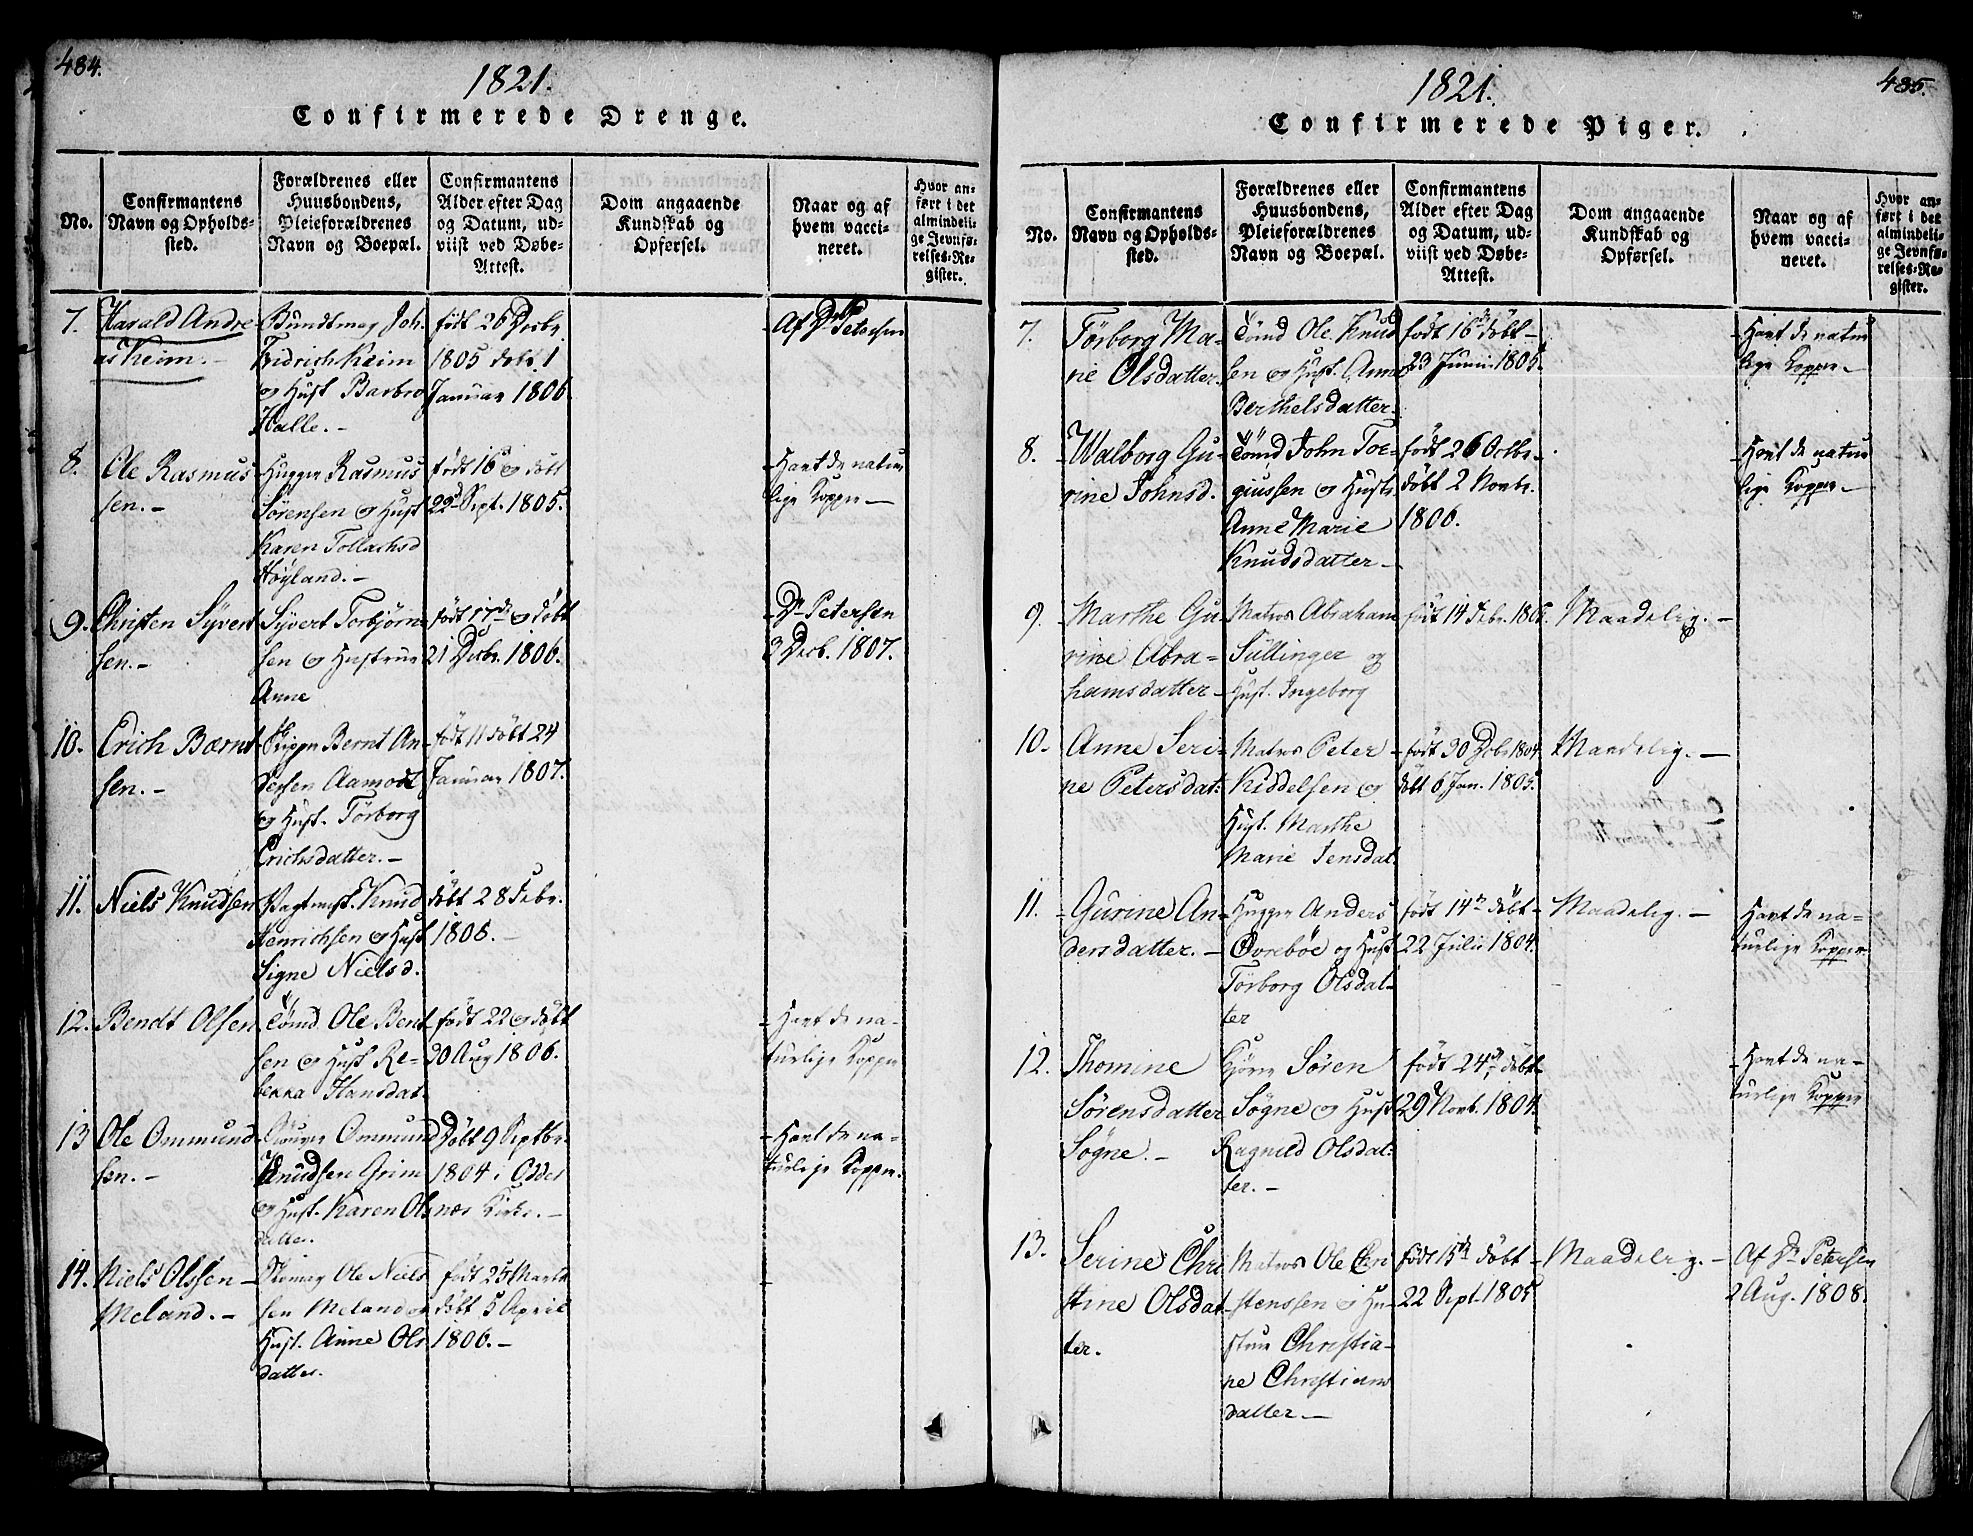 484.
1821.
Confirmerede Drenge.
No.
Confirmantens
Navn og Opholds-
sted.
Forældrenes eller
Huusbondens,
Pleieforældrenes
Navn og Boepæl.
Confirmantens
Alder efter Dag
og Datum, ud-
viist ved Døbe-
Attest.
Dom angaaende
Kundskab og
Opførsel.
Naar og af
hvem vacci-
neret.
Hvor an-
ført i det
almindeli-
ge Jevnfø-
relses-Re-
gister.
7.
Harald Andre
as Keim.-
Bundtmag Joh.
Fridrich Keim
og Hust Barbro
Halle.-
født 26 Decbr
1805 døbt 1
Januar 1806
Af Dr Petersen
8.
Ole Rasmus
sen.-
Hugger Rasmus
Sørensen og Hust
Karen Tollachsd
Høyland.-
født 16 og døbt
22d Sept. 1805.
Havt de natur
lige Kopper-
9.
Christen Syvert
sen.-
Syvert Torbjørn
sen og Hustrue
Anne
født 17de og døbt
21 Decbr. 1806.
Dr Petersen
3 Decb. 1807.
10.
Erich Bærnt
sen.-
Skipper Bernt An-
dersen Aamodt
og Hust. Tørborg
Erichsdatter.-
født 11 døbt 24
Januar 1807.
11.
Niels Knudsen
Vagtmest. Knud
Henrichsen og Hust
Signe Nielsd.
døbt 28 Febr.
1806.-
12.
Bendt Olsen
Tømd Ole Bent
sen og Hust Re-
bekka Hansdat.
født 22 og døbt
30 Aug 1806.
Havt de na-
turlige Kopper
13
Ole Ommund
sen.-
Ommund
Knudsen Grim
og Hust. Karen Ols
datter.
Døbt 9 Septbr.
1804 i Odder
næs Kirke.-
Havt de na-
turlige Kopper.
14.
Niels Olssen
Meland.-
Skomag Ole Niels
sen Meland og
Hust. Anne Ols
datter.
født 25 Marts
døbt 5 April
1806.-
1821.
485.
Confirmerede Piger.
No.
Confirmantens
Navn og Opholds-
sted.
Forældrenes eller
Huusbondens,
Pleieforældrenes
Navn og Boepæl.
Confirmantens
Alder efter Dag
og Datum, ud-
viist ved Døbe-
Attest.
Dom angaaende
Kundskab og
Opførsel.
Naar og af
hvem vacci-
neret.
Hvor an-
ført i det
almindeli-
ge Jevnfø-
relses-Re-
gister.
7.
Tørborg Ma-
rie Olsdatter
Tømd Ole Knud
sen og Hust. Anne
Berthelsdatter.
født 16de døbt
23 Junii 1805.
Havt de natur
lige Kopper-
8.
Walborg Gu-
rine Johnsd.
Tømd John Tor-
giussen og Hustr.
Anne Marie
Knudsdatter-
født 26 Octbr.
døbt 2 Novbr.
1806.
Havt de natur
lige Kopper-
9.
Marthe Gu
rine Abra-
hamsdatter
Matros Abraham
Süllinger og
Hust. Ingeborg
født 14 Febr. 1805.
Maadelig.-
10.
Anne Seri-
ne Petersdat:
Matros Peter
Kiddelsen og
Hust. Marthe
Marie Jensdat
født 30 Dcbr 1804.
døbt 6 Jan. 1805.
Maadelig.-
11.
Gurine An-
dersdatter.-
Hugger Anders
Øvrebøe og Hust
Tørborg Olsdat-
ter
født 14de døbt
22 Julii 1804.
Maadelig.-
Havt de na-
turlige Kopper.
12.
Thomine
Sørensdatter
Søgne.-
Søren
Søgne og Hust
Ragnild Olsdat:
ter.-
født 24de døbt
29 Novb. 1804.
Havt de na-
turlige Kopper
13.
Serine Chri
stine Olsdat
ter.
Matros Ole Chri
stenssen og Hu-
strue Christia-
ne Christians
datter-
født 15de døbt
22 Sept. 1805
Maadelig.-
Af Dr Petersen
2 Aug. 1808.